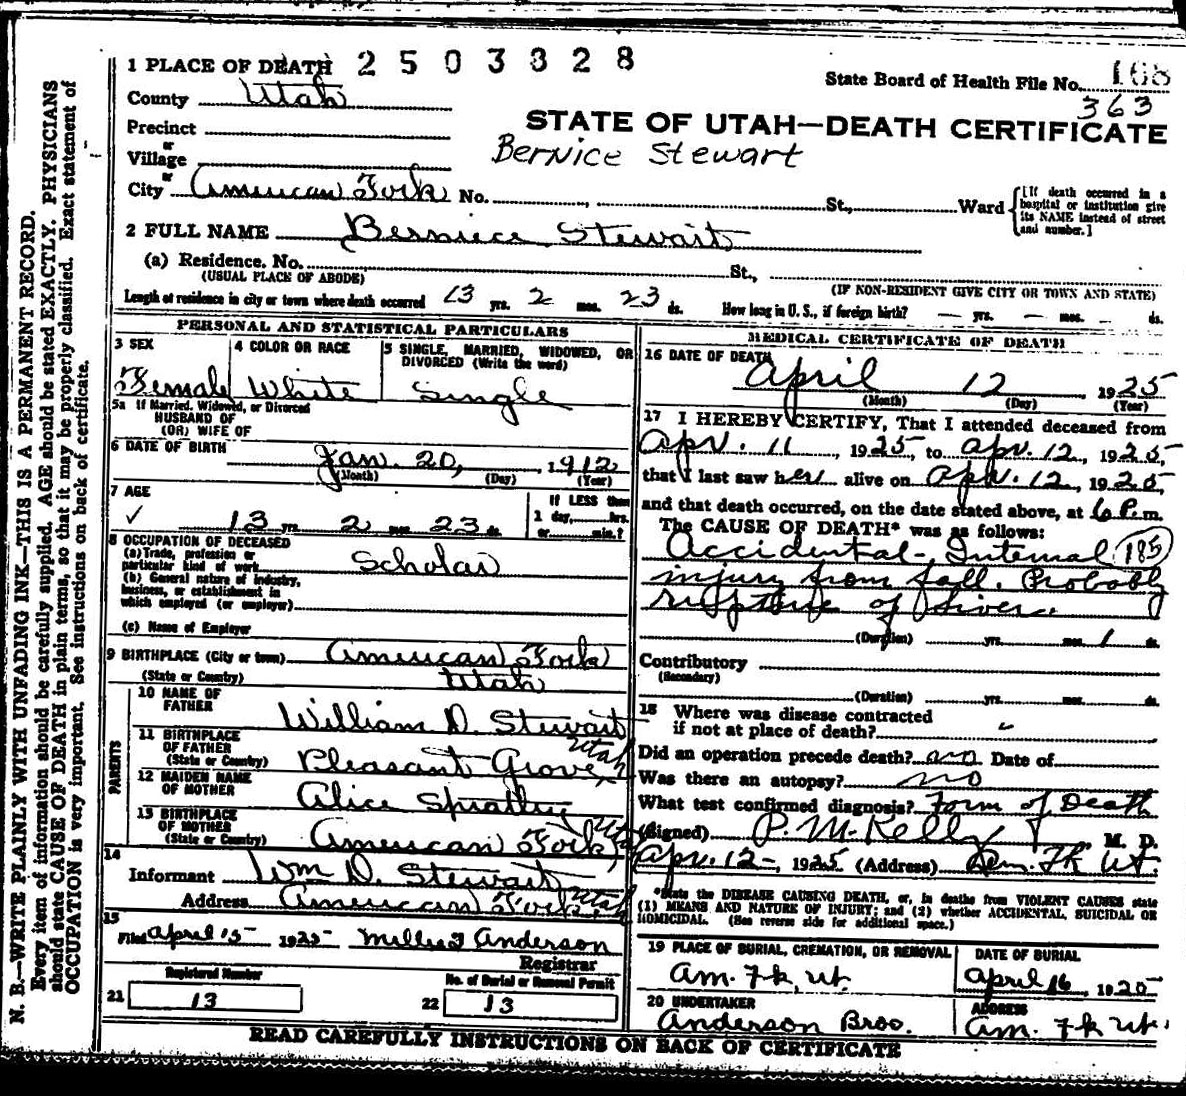 1 PLACE OF DEATH 2503328
State Board of Health File No. 168
363
County Utah
STATE OF UTAH—DEATH CERTIFICATE
Precinct
or
Village
Bernice Stewart
or
City American Fork No. , St., Ward
[If death occurred in a hospital or institution give its NAME instead of street and number.]
2 FULL NAME Berniece Stewart
(a) Residence. No. St.,
(USUAL PLACE OF ABODE) (IF NON-RESIDENT GIVE CITY OR TOWN AND STATE)
Length of residence in city or town where death occurred 13 yrs. 2 mos. 23 ds. How long in U. S., if foreign birth? — yrs. — mos. — ds.
PERSONAL AND STATISTICAL PARTICULARS
3 SEX
Female
4 COLOR OR RACE
White
5 SINGLE, MARRIED, WIDOWED, OR DIVORCED (Write the word)
Single
5a If Married, Widowed, or Divorced
HUSBAND OF
(OR) WIFE OF
6 DATE OF BIRTH Jan. 20, , 1912
(Month) (Day) (Year)
7 AGE
✓ 13 yrs. 2 mos. 23 ds.
If LESS than
1 day, hrs.
or min.?
8 OCCUPATION OF DECEASED
(a) Trade, profession or
particular kind of work Scholar
(b) General nature of industry,
business, or establishment in
which employed (or employer)
(c) Name of Employer
9 BIRTHPLACE (City or town) American Fork
(State or Country) Utah
PARENTS
10 NAME OF
FATHER William D. Stewart
11 BIRTHPLACE
OF FATHER
(State or Country) Pleasant Grove, Utah
12 MAIDEN NAME
OF MOTHER Alice Spratley
13 BIRTHPLACE
OF MOTHER
(State or Country) American Fork, Ut.
14
Informant Wm D. Stewart
Address American Fork, Utah
15
Filed April 15 1925 Millie J Anderson
Registrar
Registered Number
21 13
No. of Burial or Removal Permit
22 13
MEDICAL CERTIFICATE OF DEATH
16 DATE OF DEATH
April 12 1925
(Month) (Day) (Year)
17 I HEREBY CERTIFY, That I attended deceased from
Apr. 11 , 1925, to Apr. 12, 1925,
that I last saw her alive on Apr. 12, 1925,
and that death occurred, on the date stated above, at 6 P.m.
The CAUSE OF DEATH* was as follows:
Accidental - Internal 185
injury from fall. Probably
rupture of Liver.
(Duration) yrs. mos. 1 ds.
Contributory
(Secondary)
(Duration) yrs. mos. ds.
18 Where was disease contracted
if not at place of death?
Did an operation precede death? no Date of
Was there an autopsy? no
What test confirmed diagnosis? Form of Death
(Signed) P. M. Kelly M. D.
Apr. 12 -, 1925 (Address) Am. Fk Ut.
*State the DISEASE CAUSING DEATH, or, in deaths from VIOLENT CAUSES state
(1) MEANS AND NATURE OF INJURY; and (2) whether ACCIDENTAL, SUICIDAL OR
HOMICIDAL. (See reverse side for additional space.)
19 PLACE OF BURIAL, CREMATION, OR REMOVAL
Am. Fk, Ut.
DATE OF BURIAL
April 16, 1925
20 UNDERTAKER
Anderson Bros.
ADDRESS
Am. Fk Ut.
READ CAREFULLY INSTRUCTIONS ON BACK OF CERTIFICATE
N. B.—WRITE PLAINLY WITH UNFADING INK—THIS IS A PERMANENT RECORD.
Every item of information should be carefully supplied. AGE should be stated EXACTLY. PHYSICIANS
should state CAUSE OF DEATH in plain terms, so that it may be properly classified. Exact statement of
OCCUPATION is very important. See instructions on back of certificate.